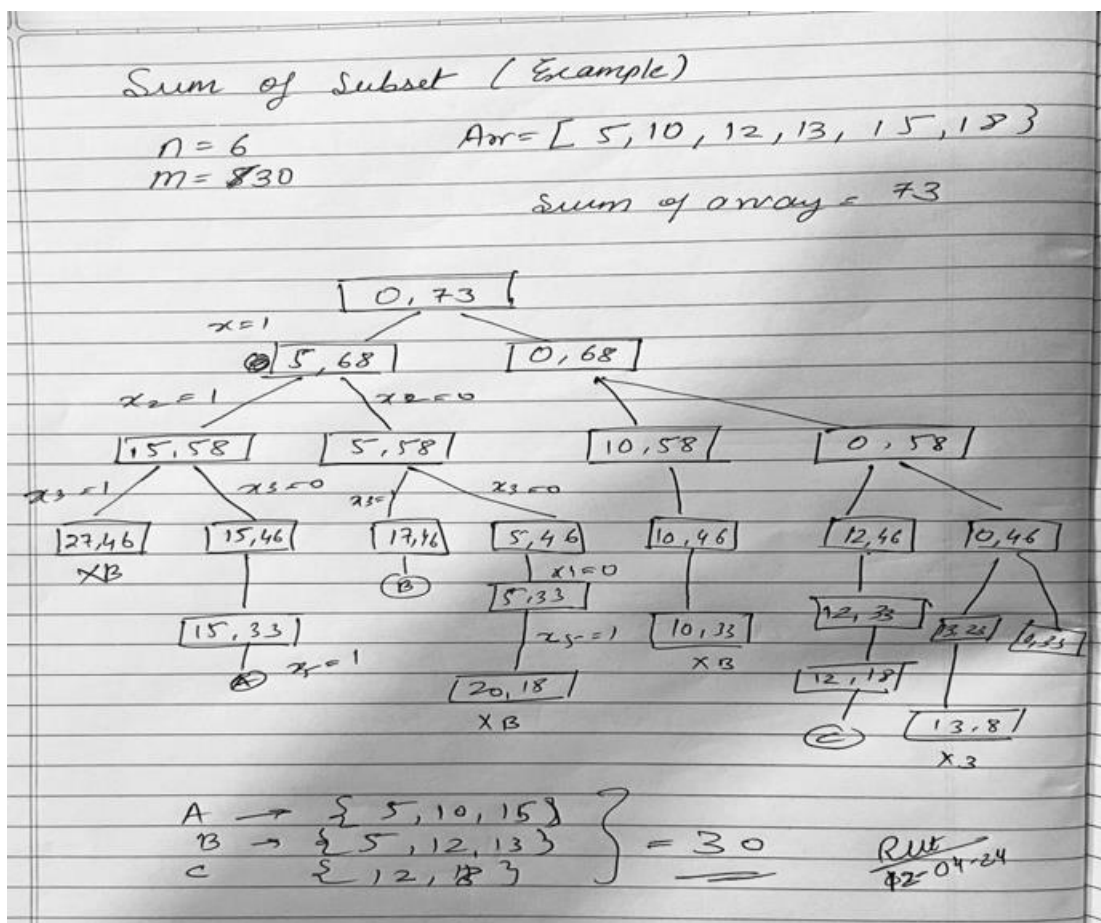 Sum of Subset (Example)
n = 6 Arr = [ 5, 10, 12, 13, 15, 18 }
m = 30
Sum of array = 73
0, 73
x=1
5, 68 0, 68
x2 = 1 x2 = 0
15, 58 5, 58 10, 58 0, 58
x3 = 1 x3 = 0 x3= x3 = 0
27,46 15,46 17,46 5,46 10,46 12,46 0,46
XB B
5,33 12,33
15,33 x5 = 1 10,33
A x5 = 1 XB
20,18 12,18
XB C 13,8
A → { 5, 10, 15 }
B → { 5, 12, 13 } = 30
C { 12, 18 }